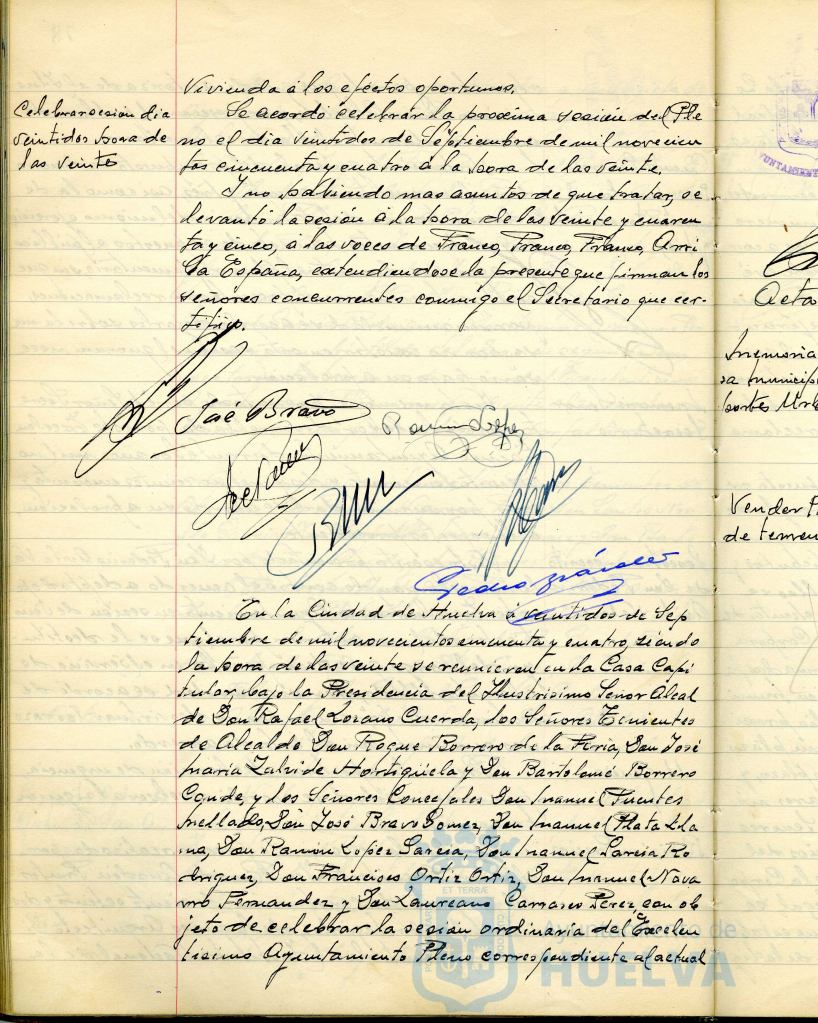 Vivienda á los efectos oportunos.
Celebrar sesión dia
veintidos hora de
las veinte
Se acordó celebrar la proxima sesión del Ple
no el dia veintidos de Septiembre de mil novecien
tos cincuenta y cuatro á la hora de las veinte.
Y no habiendo mas asuntos de que tratar, se
levantó la sesión á la hora de las veinte y cuaren
ta y cinco, á las voces de Franco, Franco, Franco, Arri
ba España, extendiendose la presente que firman los
señores concurrentes conmigo el Secretario que cer-
tifico.
José Bravo
Ramon Lopez
En la Ciudad de Huelva á veintidos de Sep
tiembre de mil novecientos cincuenta y cuatro, siendo
la hora de las veinte se reunieron en la Casa Capi
tular, bajo la Presidencia del Ilustrisimo Señor Alcal
de Don Rafael Lozano Cuerda, los Señores Tenientes
de Alcalde Don Roque Borrero de la Feria, Don José
Maria Zalvide Hortigüela y Don Bartolomé Borrero
Conde, y los Señores Concejales Don Manuel Fuentes
Mellado, Don José Bravo Gomez, Don Manuel Plata Lla
na, Don Ramon Lopez Garcia, Don Manuel Garcia Ro
driguez, Don Francisco Ortiz Ortiz, Don Manuel Nava
rro Fernandez y Don Laureano Carrasco Perez, con ob
jeto de celebrar la sesión ordinaria del Excelen
tisimo Ayuntamiento Pleno correspondiente al actual
Acta
Memoria
Vender
de terren
HUELVA